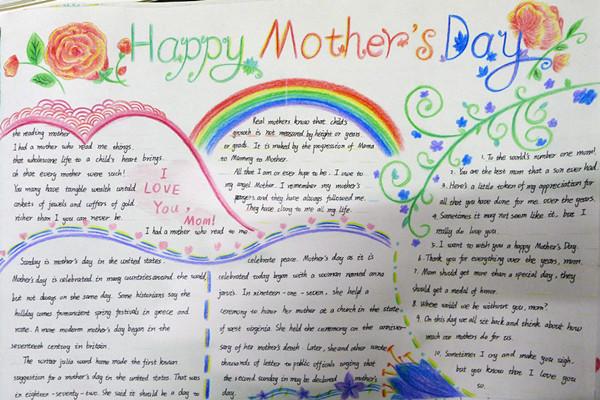 Happy Mother's Day
the reading mother
I had a mother who read me things.
that wholesome life to a child's heart brings.
oh that every mother were such!
You may have tangible wealth untold
caskets of jewels and coffers of gold
richer than I you can never be.
I had a mother who read to me
I
LOVE
YOU,
Mom!
Real mothers know that child's
growth is not measured by height or years
or grade. It is maked by the progression of Mama
to Mommy to Mother.
All that I am or ever hope to be. I owe to
my angel Mother. I remember my mother's
prayers and they have always followed me.
They have clong to me all my life.
1. To the world's number one mom!
2. You are the best mom that a son ever had.
3. Here's a little token of my appreciation for
all that you have done for me over the years.
4. Sometimes it may not seem like it, but I
really do love you.
5. I want to wish you a happy Mother's Day.
6. Thank you for everything over the years, mom.
7. Mom should get more than a special day, they
should get a medal of honor.
8. Where would we be without you, mom?
9. On this day we all set back and think about how
much our mothers do for us.
10. Sometimes I cry and make you sigh.
but you know that I love you
so.
Sunday is mother's day in the united states.
Mother's day is celebrated in many countries around the world
but not always on the same day. Some historians say the
holiday comes from ancient spring festivals in greece and
rome. A more modern mother's day began in the
seventeenth century in britain.
The writer julia ward home made the first known
suggestion for a mother's day in the united states. That was
in eighteen-seventy-two. She said it should be a day to
celebrate peace. Mother's day as it is
celebrated today began with a woman named anna
jarvis. In nineteen-one-seven, she held a
ceremony to honor her mother at a church in the state
of west virginia. She held the ceremony on the anniver-
sary of her mother's death. Later, she and other wrote
thousands of letter to public officials urging that
the second sunday in may be declared mother's
day.